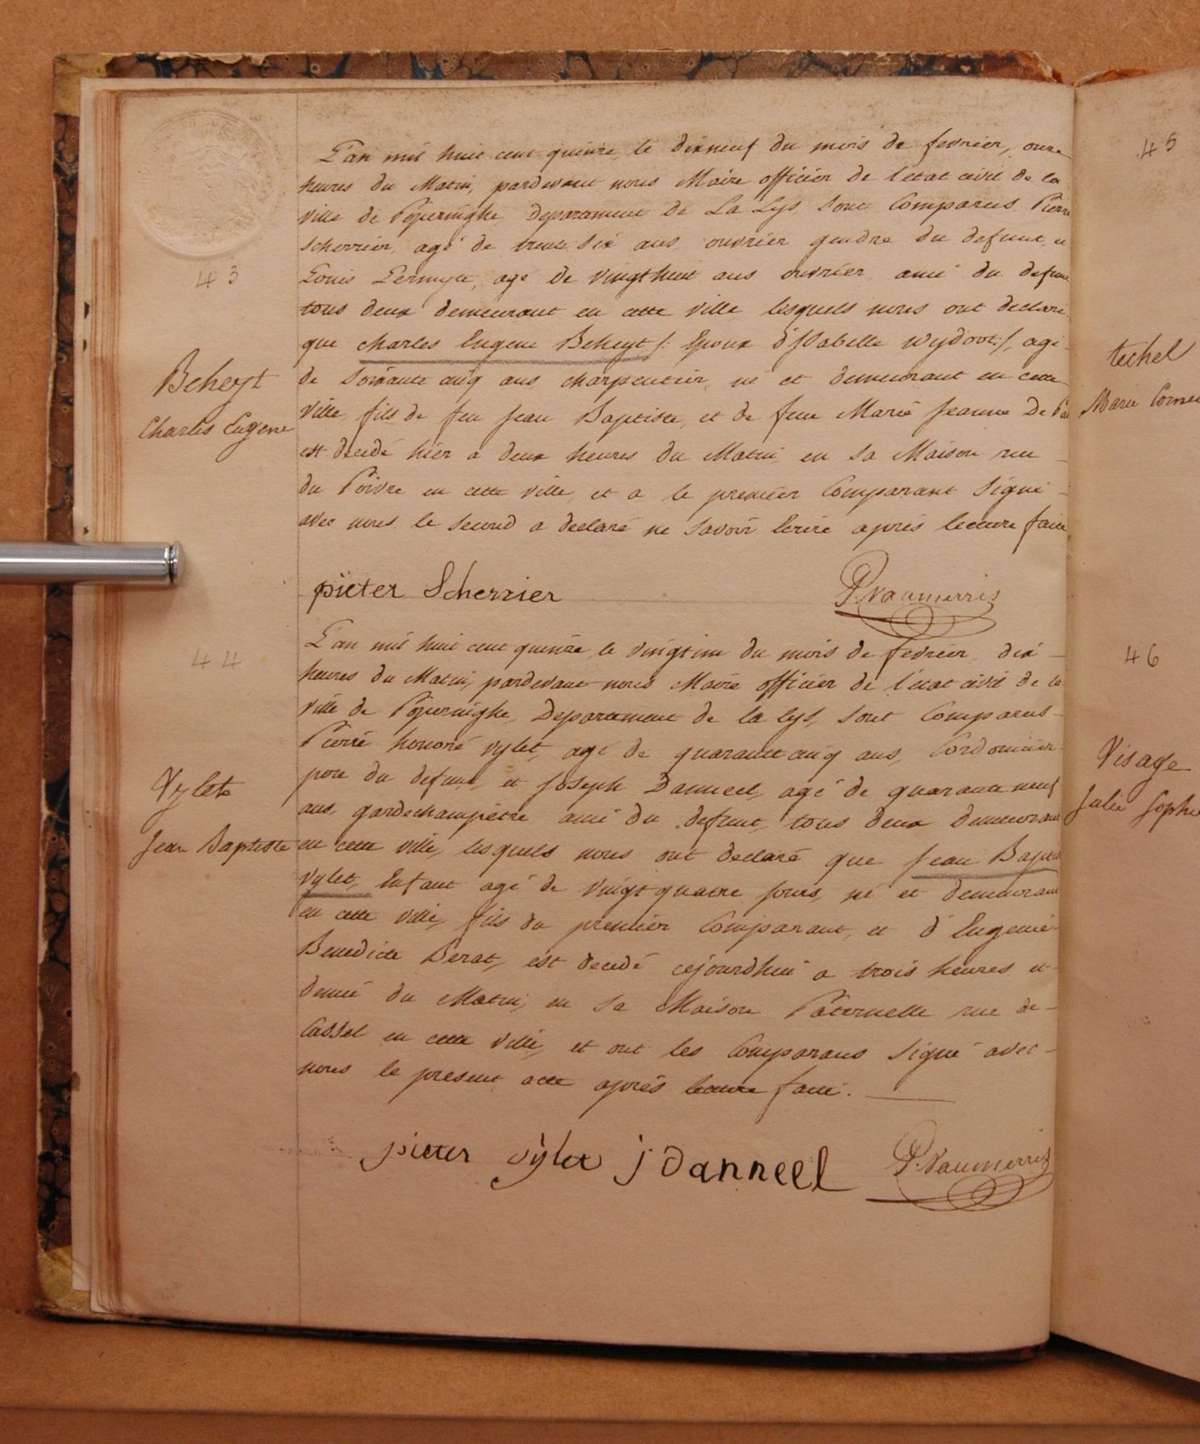 43
Beheyt
Charles Eugene
L'an mil huit cent quinze, le dixneuf du mois de fevrier, onze
heures du Matin, pardevant nous Maire officier de l'etat civil de la
ville de Poperinghe, Departement de La Lys sont Comparus Pierre
Scherrier, agé de trente six ans, ouvrier gendre du defunt, et
Louis agé de vingthuit ans ouvrier ami du defunt
tous deux demeurant en cette ville lesquels nous ont declaré
que charles Eugene Beheyt /: Epoux d'Isabelle Wydoot :/, agé
de Soixante cinq ans charpentier, né et demeurant en cette
ville, fils de feu Jean Baptiste, et de feue Marie Jeanne De
est decedé hier a deux heures du Matin en sa Maison rue
du Poivre en cette ville, et a le premier Comparant Signé
avec nous, le second a declaré ne savoir Ecrire après lecture faite
pieter Scherrier P. Vanmerris
44
Vylet
Jean Baptiste
L'an mil huit cent quinze, le vingt un du mois de fevrier, dix
heures du Matin, pardevant nous Maire officier de l'etat civil de la
ville de Poperinghe, Departement de la Lys, sont Comparus
Pierre honoré vylet, agé de quarante cinq ans, Cordonnier
pere du defunt, et Joseph Danneel, agé de quarante neuf
ans, gardechampetre ami du defunt, tous deux demeurant
en cette ville, lesquels nous ont declaré que Jean Baptiste
vylet, Enfant agé de vingt quatre jours, né et demeurant
en cette ville, fils du premier Comparant, et d'Eugenie
Benedicte Berat, est decedé cejourdhui a trois heures et
demie du Matin, en sa Maison Paternelle rue de
Cassel en cette ville, et ont les Comparans Signé avec
nous le present acte après lecture faite.
pieter vylet J Danneel P. Vanmerris
45
techel
Marie Corne
46
Visage
Julie Sophie